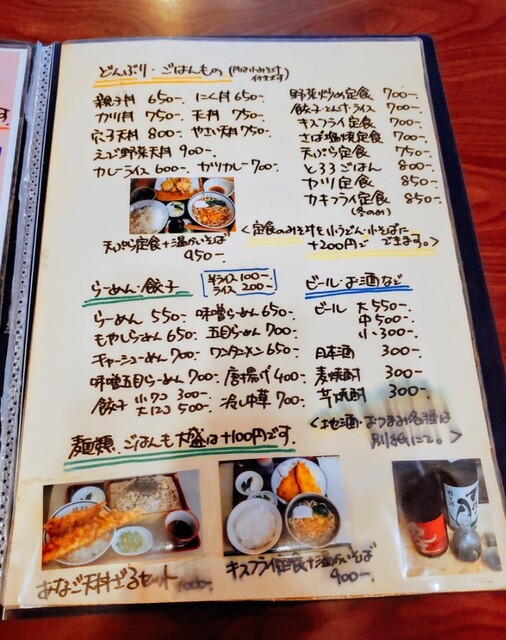 どんぶり・ごはんもの (丼は小みそ汁
付きます)
親子丼 650- にく丼 650-
カツ丼 750- 天丼 750-
穴子天丼 800- やさい天丼 750-
えび野菜天丼 900-
カレーライス 600- カツカレー 700-
天ぷら定食+温かいそば
950-
野菜炒め定食 700-
餃子・とん汁・ライス 700-
キスフライ定食 700-
さば塩焼定食 700-
天ぷら定食 750-
とろろごはん 800-
カツ定食 850-
カキフライ定食 850-
(冬のみ)
<定食のみそ汁を小うどん・小そばに
+200円で できます。>
らーめん・餃子
半ライス 100-
ライス 200-
らーめん 550- 味噌らーめん 650-
もやしらーめん 650- 五目らーめん 700-
チャーシューめん 700- ワンタンメン 650-
味噌五目らーめん 700- 唐揚げ 400-
餃子 小(7コ) 300- 冷し中華 700-
大(12コ) 500-
麺類、ごはんも大盛は+100円です。
ビール・お酒など
ビール 大 550-
中 500-
小 300-
日本酒 300-
麦焼酎 300-
芋焼酎 300-
<地酒・おつまみ各種は
別紙にて。>
あなご天丼ざるセット 1000-
キスフライ定食+温かいそば
900-
す